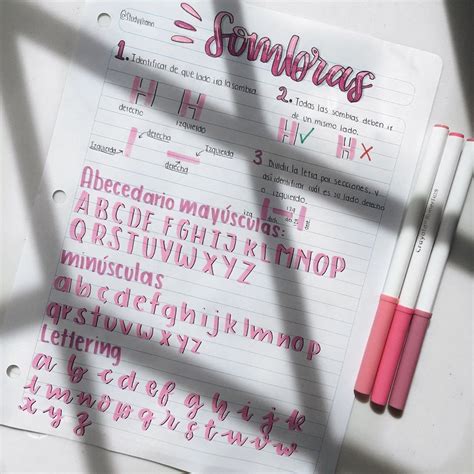 Sombras
1. Identificar de qué lado ira la sombra.
H H
derecho izquierdo
Izquierda derecha Izquierda
derecha
2. Todas las sombras deben ir
de un mismo lado.
H ✓ H ✗
3. Dividir la letra por secciones, y
así identificar cuál es su lado derecho
o izquierdo
Abecedario mayúsculas:
ABCDEFGHIJKLMNOP
QRSTUVWXYZ
minúsculas
abcdefghijklmnop
qrstuvwxyz
Lettering
abcdefghijk
lmnopqrstuvw
xyz